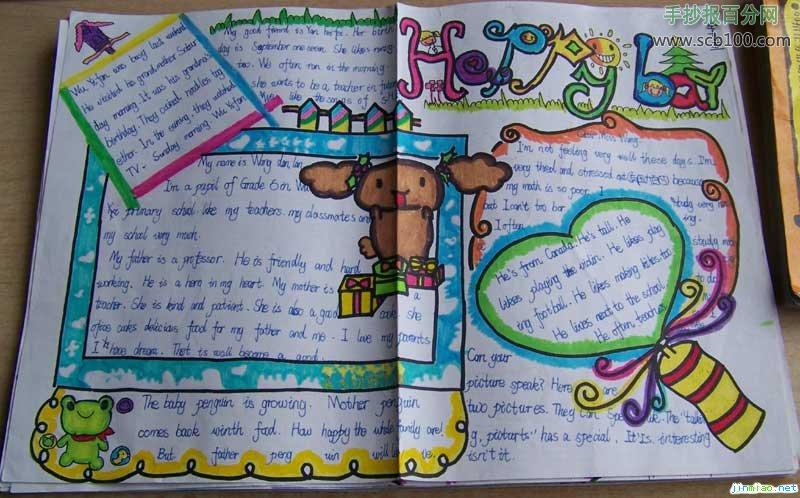 手抄报百分网
www.scb100.com
Happy bay
Wu Yifan was busy last weekend
He visited his grandmother
day morning. It was his grandma's
birthday. They cooked noodles tog
ether. In the evening, they watched
TV. Sunday morning, Wu Yifan
My good friend is
day is September. She likes
too. We often run in the morning.
she wants to be a teacher in
like the songs of
My name is Wang dan
I'm a pupil of Grade 6 in
primary school. I like my teachers, my classmates and
my school very much.
My father is a professor. He is friendly and hard
working. He is a hero in my heart. My mother is a
teacher. She is kind and patient. She is also a good cook. she
often cooks delicious food for my father and me. I love my parents
I have dream. That is will become a good
The baby penguin is growing. Mother penguin
comes back winth food. How happy the whole family are!
But father peng uin will
Dear Miss Wang.
I'm not feeling very well these days. I'm
very tired and stressed because
my math is so poor. I study
but I can't too
I often
study
to
He's from Canada. He's tall. He
likes playing the violin. He likes play
ing football. He likes making kites too
He lives next to the school.
He often teaches
Can your
picture speak? Here are
two pictures. They can The "talk
g, pictures" has a special. It Is interesting
isn't it.
jinmiao.net